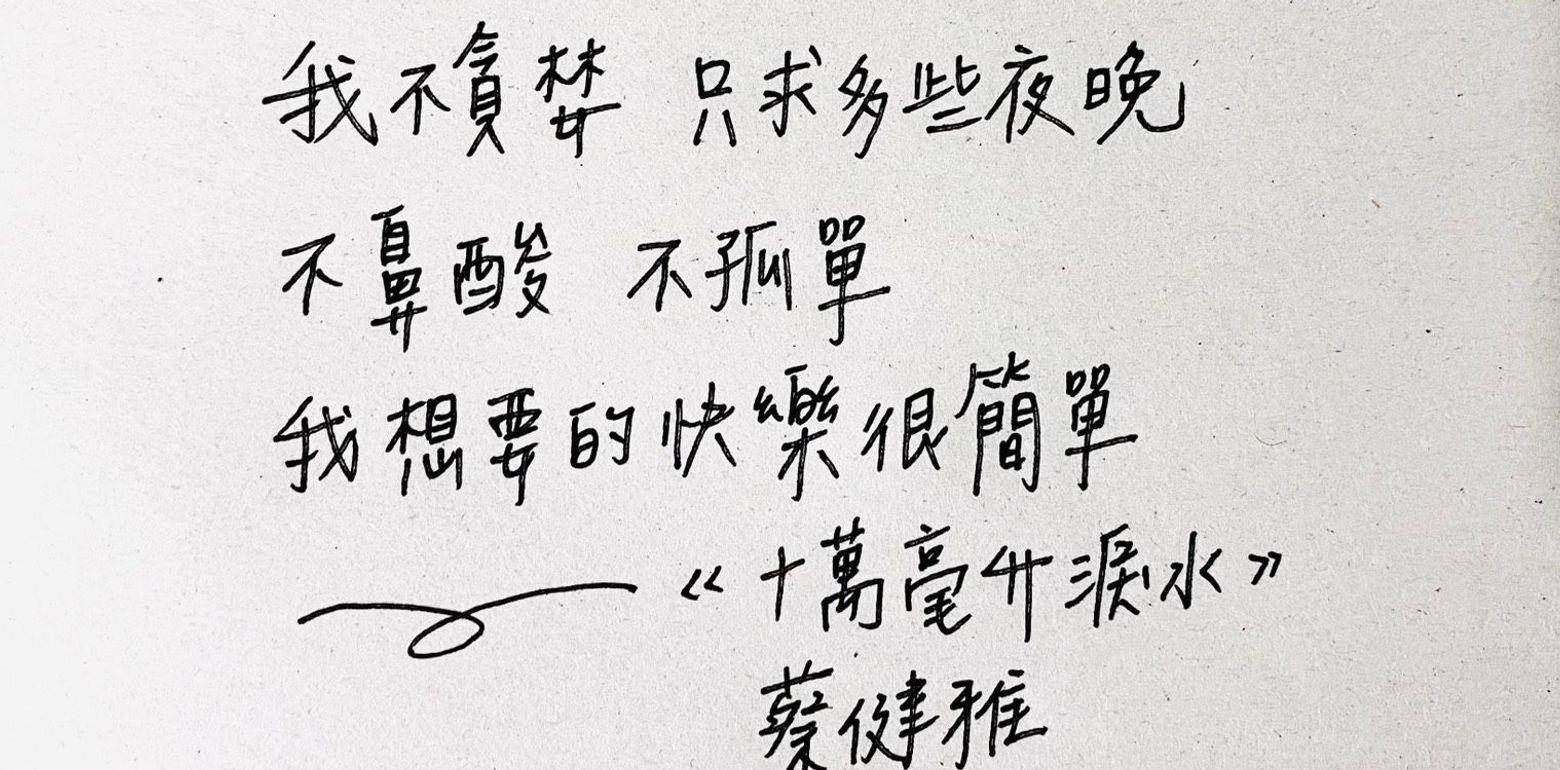 我不貪婪 只求多些夜晚
不鼻酸 不孤單
我想要的快樂很簡單
《十萬毫升淚水》
蔡健雅